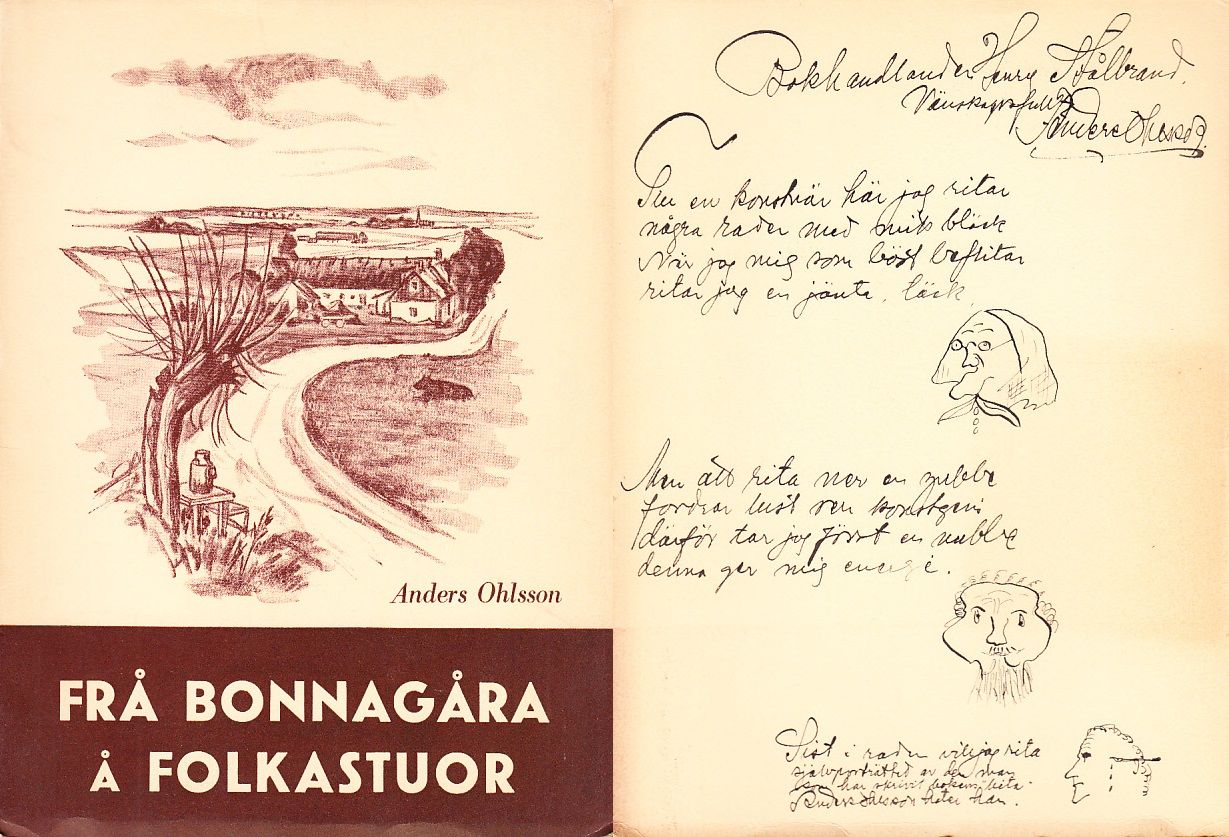 Anders Ohlsson
FRÅ BONNAGÅRA
Å FOLKASTUOR
Bokhandlanden Henry Stålbrand.
Vänskapsfullt
Anders Ohlsson.
en konstnär här jag ritar
några rader med mitt bläck
När jag mig som bäst beflitar
ritar jag en jänta, läck.
Men att rita ner en gubbe
fordrar visst ren konstgeni
därför tar jag först en nubbe
denna ger mig energi.
Sist i raden vill jag rita
självporträtted av den man
som har skrivit boken
Anders Ohlsson heter han.